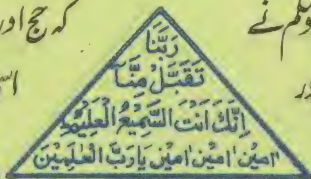 وسلم نے
کہ حج اور
رَبَّنَا
تَقَبَّلْ مِنَّا
اِنَّكَ اَنْتَ السَّمِيْعُ الْعَلِيْمُ
اٰمِيْن اٰمِيْن اٰمِيْن يَارَبَّ الْعٰلَمِيْنَ